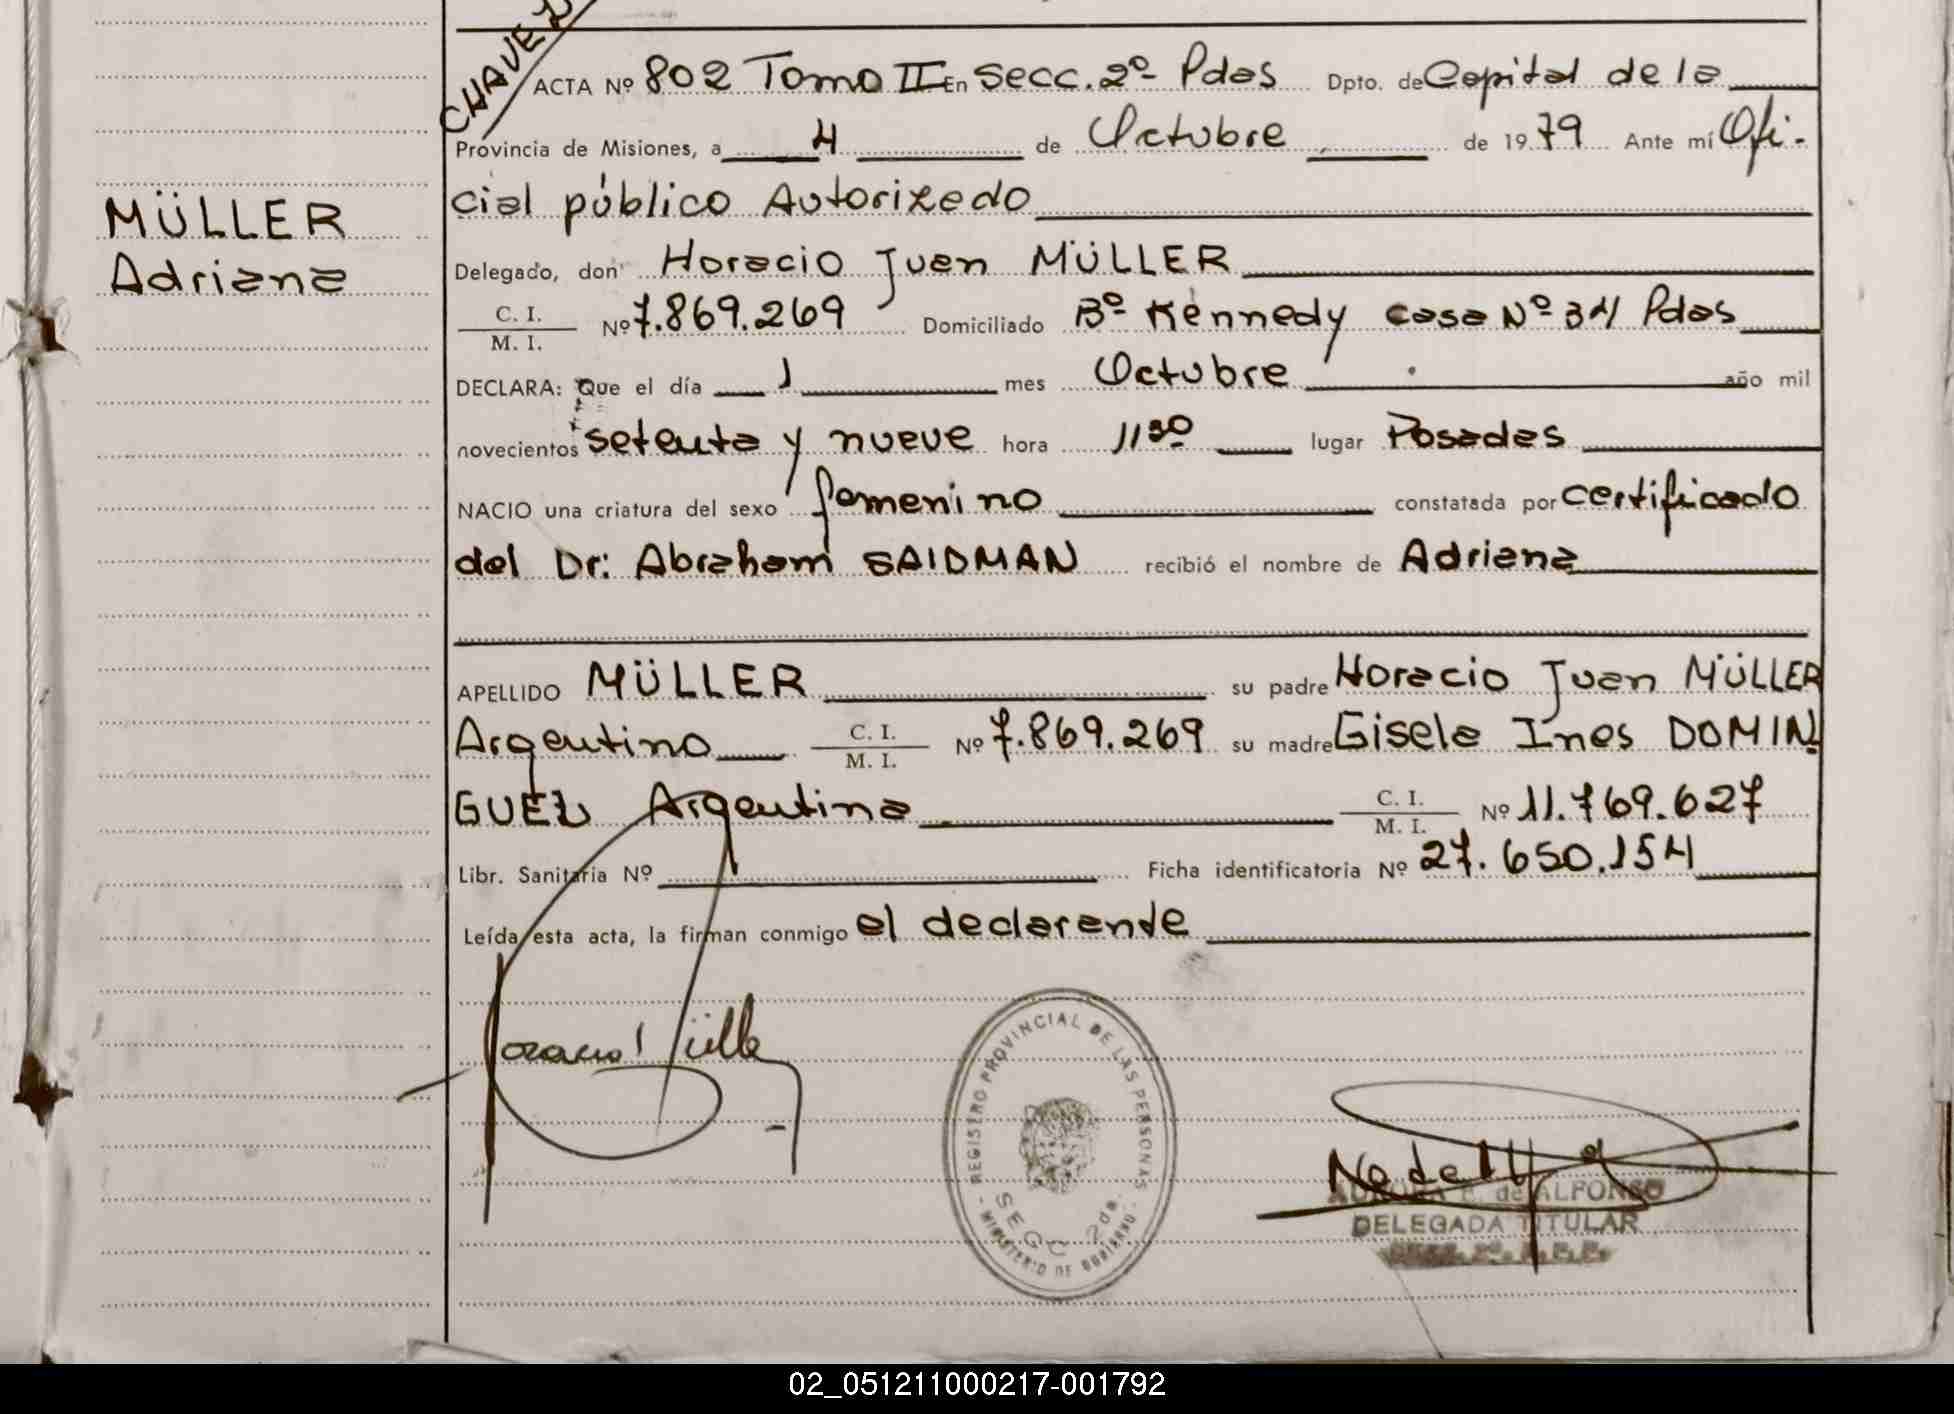 CHAVEZ
ACTA Nº 802 Tomo II En Secc. 2º Pdas Dpto. de Capital de la
Provincia de Misiones, a 4 de Octubre de 1979 Ante mí Ofi-
cial público Autorizado
MÜLLER
Adriana
Delegado, don Horacio Juan MÜLLER
C. I.
M. I. Nº 7.869.269 Domiciliado Bº Kennedy casa Nº 34 Pdas
DECLARA: Que el día 1 mes Octubre año mil
novecientos setenta y nueve hora 11 30 lugar Posadas
NACIO una criatura del sexo femenino constatada por certificado
del Dr: Abraham SAIDMAN recibió el nombre de Adriana
APELLIDO MÜLLER su padre Horacio Juan MÜLLER
Argentino C. I. M. I. Nº 7.869.269 su madre Gisela Ines DOMIN
GUEZ Argentina C. I. M. I. Nº 11.769.627
Libr. Sanitaria Nº Ficha identificatoria Nº 27.650.154
Leída esta acta, la firman conmigo el declarande
REGISTRO PROVINCIAL DE LAS PERSONAS
SECC 2da.
MINISTERIO DE GOBIERNO
E. de ALFONSO
DELEGADA TITULAR
02_051211000217-001792